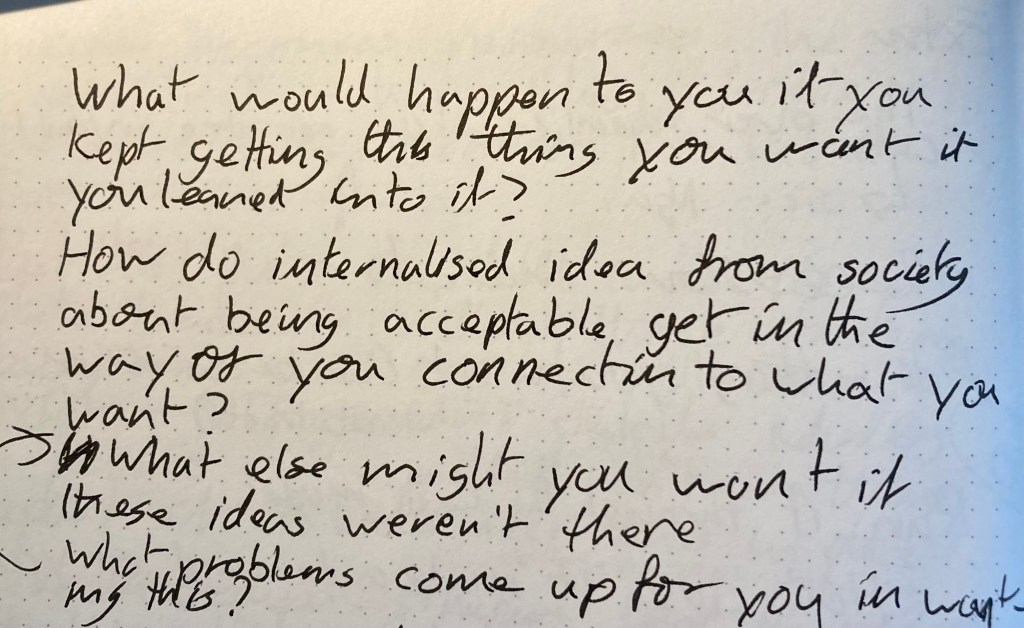 What would happen to you if you
kept getting this thing you want if
you leaned into it?
How do internalised idea from society
about being acceptable get in the
way of you connectin to what you
want?
→ What else might you want if
these ideas weren't there
What problems come up for you in want-
ing this?